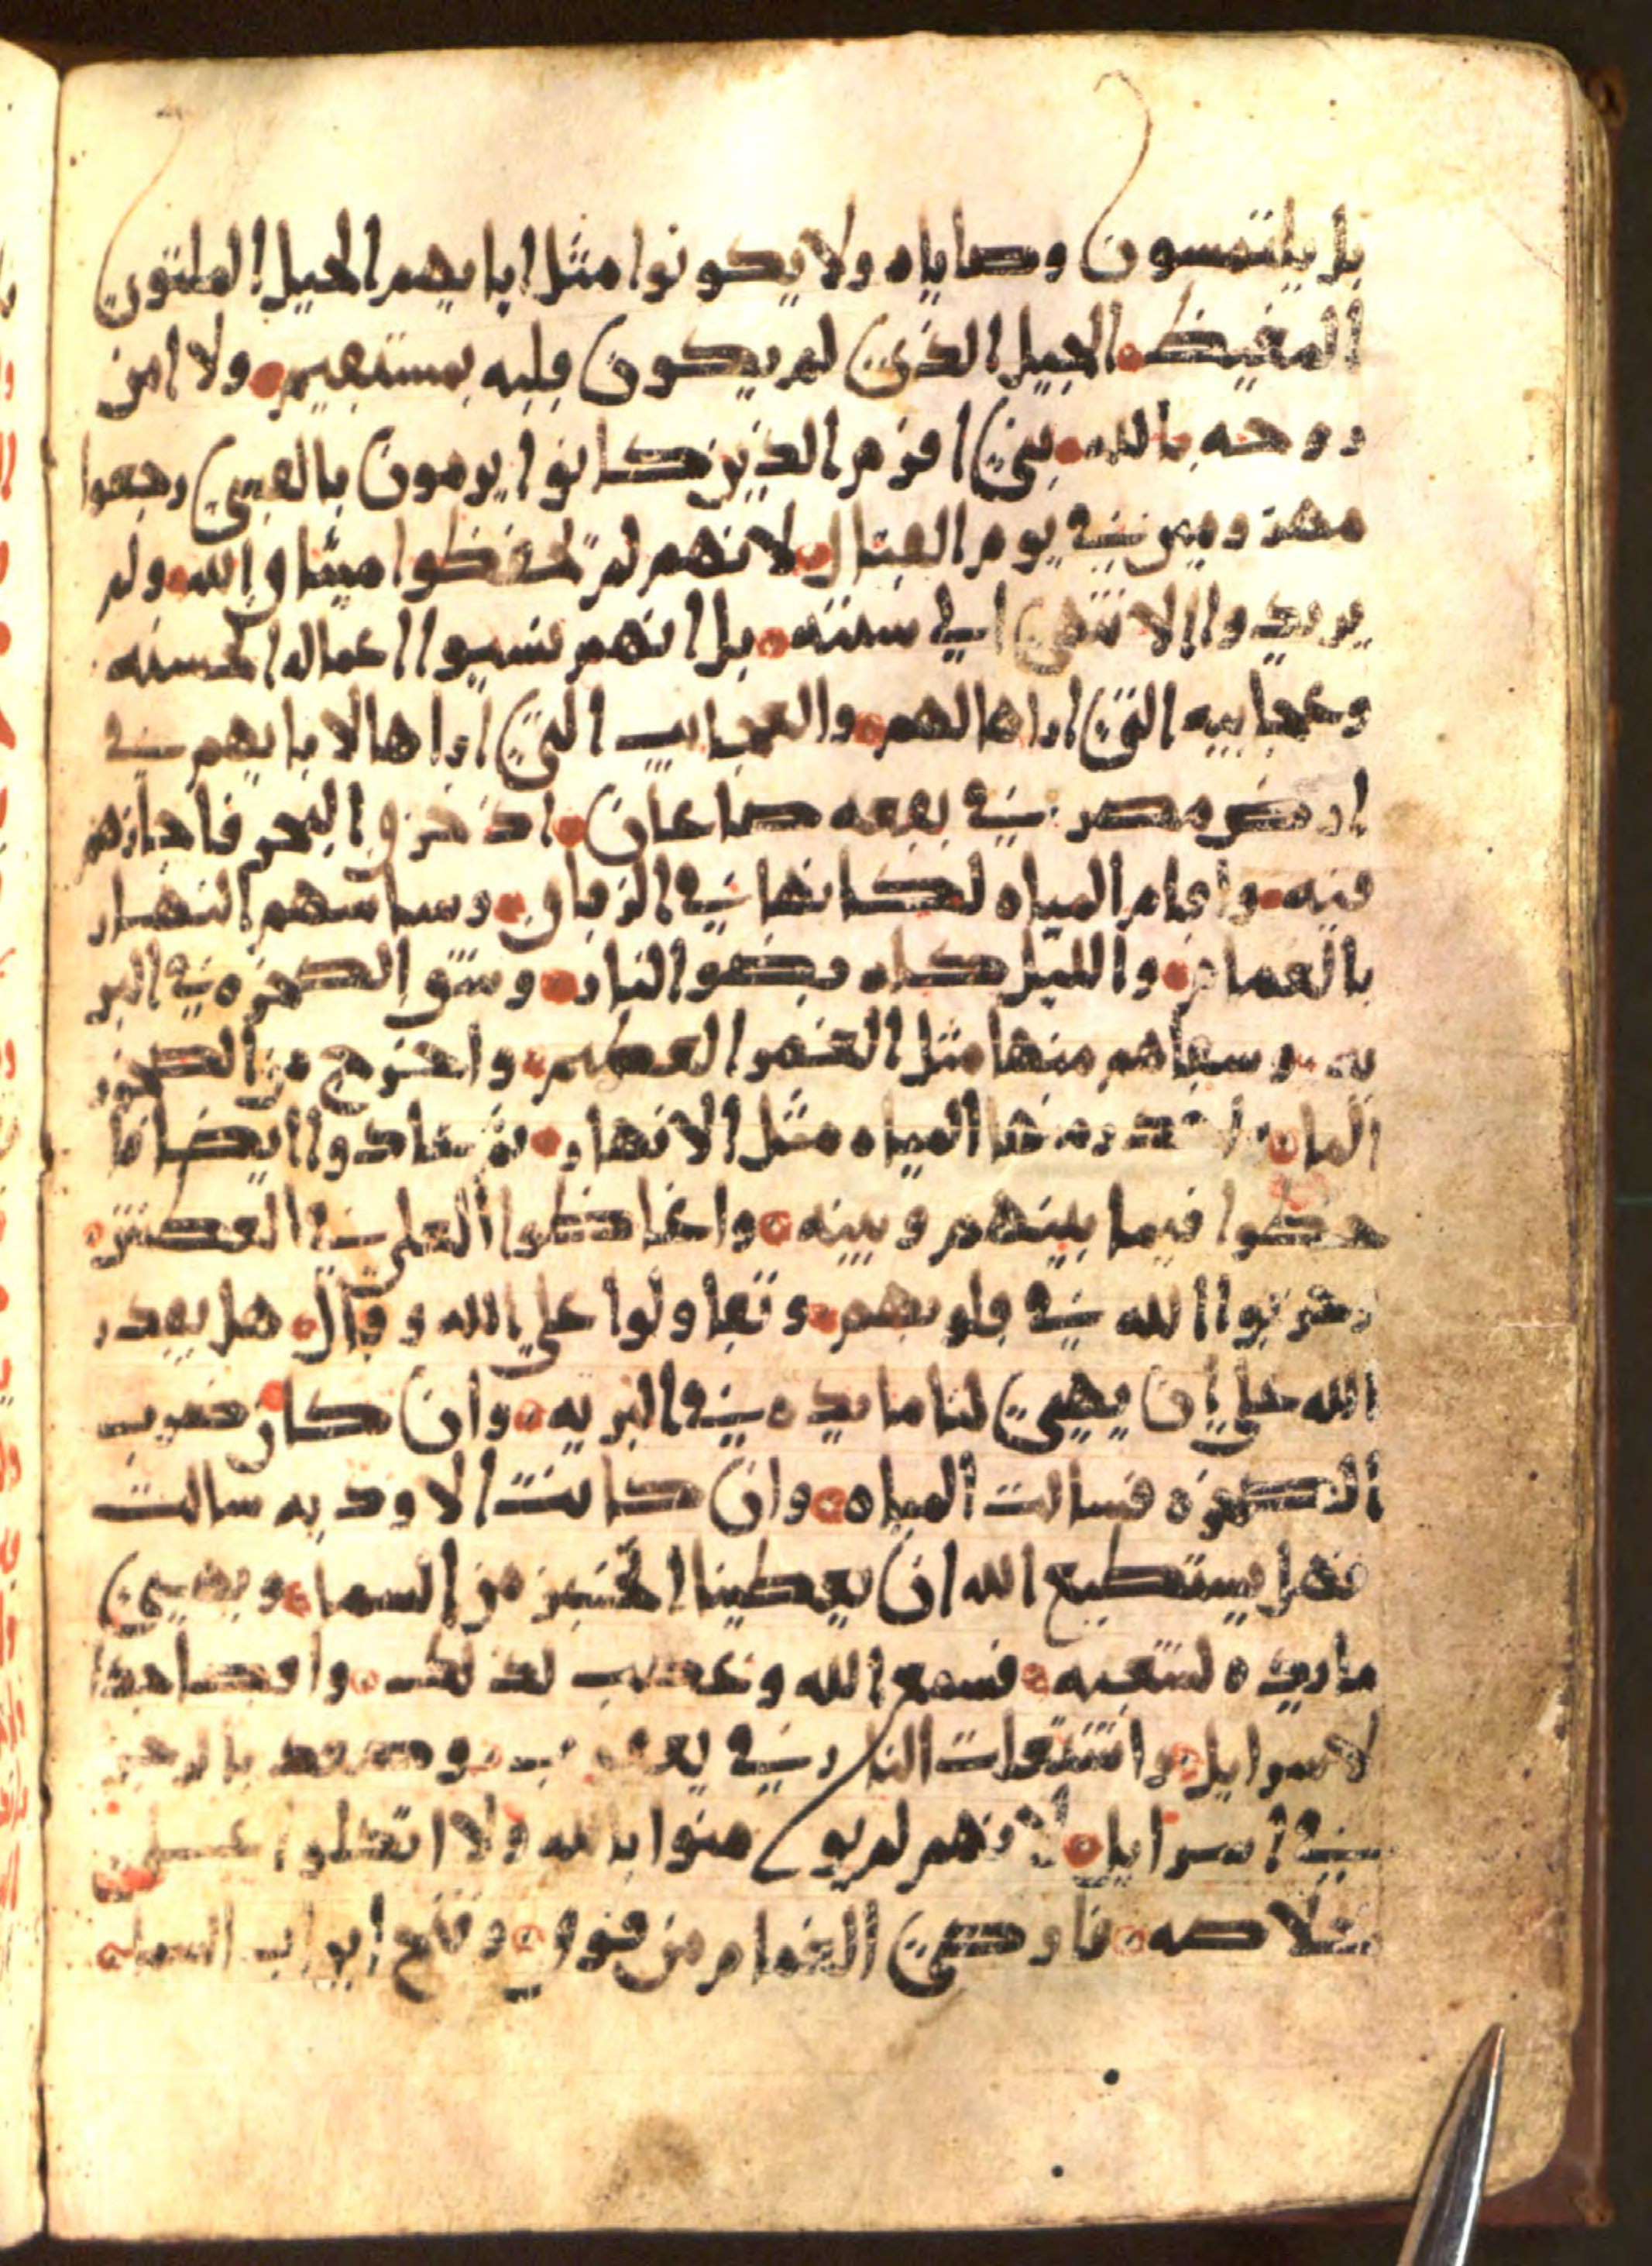 بل يلتمسون وصاياه ولا يكونوا مثل ابايهم الجيل الملتوي
المغيظ الجيل الذي لم يكون قلبه بمستقيم ولا امن
روحه بالله بني افرم الذين كانوا يرمون بالقسي رجعوا
مهزومين في يوم القتال لانهم لم يحفظوا ميثاق الله ولم
يريدوا الانتهى الي سنته بل انهم نسيوا اعماله الحسنه
وعجايبه التي اراها لهم والعجايب التي اراها لابايهم في
ارض مصر في بقعه صاعان اذ خرق البحر فاجازهم
فيه واقام المياه لكانها في الزقاق وساسهم النهار
بالغمام والليل كله بضو النار وشق الصخره في البر
يه وسقاهم منها مثل الغمر العظيم واخرج من الصخره
الما منها المياه مثل الانهار ثم عادوا ايضا فا
خطوا فيما بينهم وبينه واغاظوا العلي في العطش
وجربوا الله في قلوبهم وتقاولوا علي الله وقال هل يقدر
الله علي ان يهيي لنا مايده في البريه وان كان ضرب
الصخره فسالت المياه وان كانت الاوديه سالت
فهل يستطيع الله ان يعطينا الخبز من السما ويهيي
مايده لشعبه فسمع الله وغضب لذلك واقصا جدا
لاسرايل واشتعلت النار في يعقوب وصعد بالرجز
في اسرايل لانهم لم يومنوا بالله ولا اتكلوا علي
خلاصه فاوصي الغمام من فوق وفتح ابواب السما